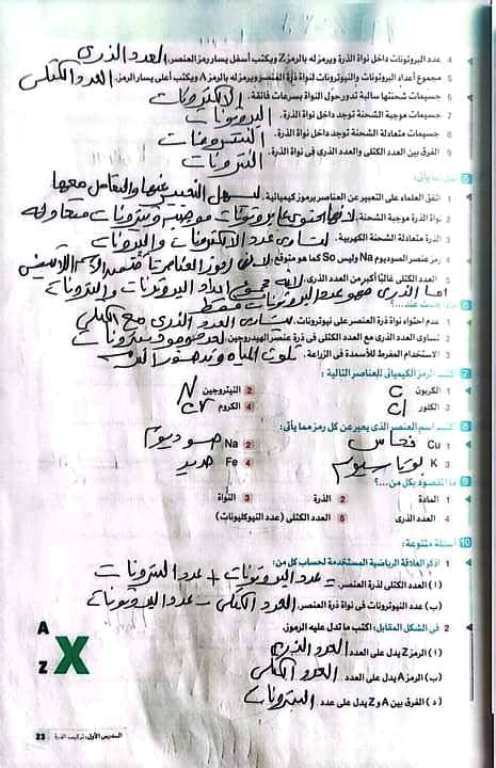 4 عدد البروتونات داخل نواة الذرة ويرمز له بالرمز Z ويكتب أسفل يسار رمز العنصر. العدد الذرى
5 مجموع أعداد البروتونات والنيوترونات لنواة ذرة العنصر ويرمز له بالرمز A ويكتب أعلى يسار الرمز. العدد الكتلى
6 جسيمات شحنتها سالبة تدور حول النواة بسرعات فائقة. الالكترونات
7 جسيمات موجبة الشحنة توجد داخل نواة الذرة. البروتونات
8 جسيمات متعادلة الشحنة توجد داخل نواة الذرة.
9 الفرق بين العدد الكتلى والعدد الذرى فى نواة الذرة. النترونات
5 علل لما يأتى:
1 اتفق العلماء على التعبير عن العناصر برموز كيميائية. ليسهل التعبير عنها والتعامل معها
2 نواة الذرة موجبة الشحنة. لانها تحتوى على بروتونات موجبه ونيترونات متعادله
3 الذرة متعادلة الشحنة الكهربية. لتساوى عدد الالكترونات والبروتونات
4 رمز عنصر الصوديوم Na وليس So كما هو متوقع. لان رموز العناصر
5 العدد الكتلى غالبًا أكبر من العدد الذرى. لانه مجموع اعداد البروتونات والنترونات
اما الذرى فهو عدد البروتونات فقط
6 ماذا يحدث عند...؟
1 عدم احتواء نواة ذرة العنصر على نيوترونات. يتساوى العدد الذرى مع الكتلى
2 تساوى العدد الذرى مع العدد الكتلى فى ذرة عنصر الهيدروجين. لعدم وجود نيترونات
3 الاستخدام المفرط للأسمدة فى الزراعة. تلوث المياه وتدهور
7 اكتب الرمز الكيميائى للعناصر التالية:
1 الكربون C 2 النيتروجين N
3 الكلور Cl 4 الكروم Cr
8 اكتب اسم العنصر الذى يعبر عن كل رمز مما يأتى:
1 Cu نحاس 2 Na صوديوم
3 K بوتاسيوم 4 Fe حديد
9 ما المقصود بكل من...؟
1 المادة 2 الذرة 3 النواة
4 العدد الذرى 5 العدد الكتلى (عدد النيوكليونات)
10 أسئلة متنوعة:
1 اذكر العلاقة الرياضية المستخدمة لحساب كل من:
(أ) العدد الكتلى لذرة العنصر. = عدد البروتونات + عدد النترونات
(ب) عدد النيوترونات فى نواة ذرة العنصر. العدد الكتلى - عدد البروتونات
2 فى الشكل المقابل: اكتب ما تدل عليه الرموز.
(أ) الرمز Z يدل على العدد العدد الذرى
(ب) الرمز A يدل على العدد العدد الكتلى
(د) الفرق بين A و Z يدل على عدد النيترونات
A
X
Z
الدرس الأول: تركيب الذرة 23